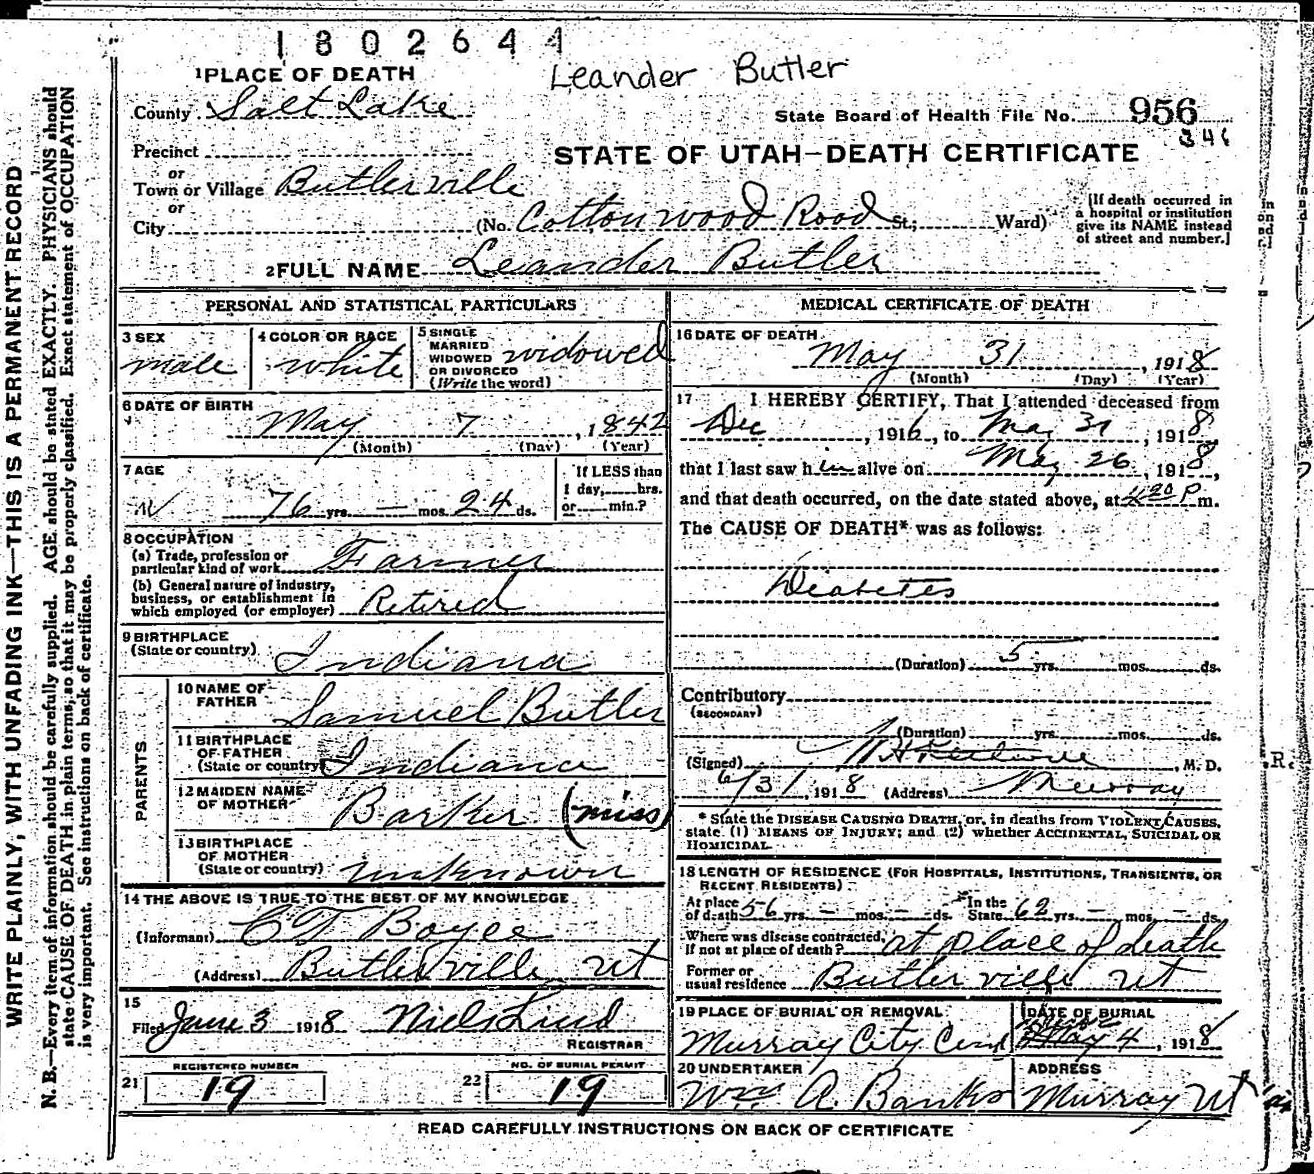 1802644
Leander Butler
1 PLACE OF DEATH
County Salt Lake
State Board of Health File No. 956
346
Precinct
STATE OF UTAH—DEATH CERTIFICATE
or
Town or Village Butlerville
or
City (No. Cottonwood Road St.; Ward)
[If death occurred in a hospital or institution give its NAME instead of street and number.]
2 FULL NAME Leander Butler
PERSONAL AND STATISTICAL PARTICULARS
3 SEX
male
4 COLOR OR RACE
white
5 SINGLE
MARRIED
WIDOWED
OR DIVORCED
(Write the word)
widowed
6 DATE OF BIRTH
May 7, 1842
(Month) (Day) (Year)
7 AGE
76 yrs. — mos. 24 ds.
If LESS than
1 day, hrs.
or min.?
8 OCCUPATION
(a) Trade, profession or
particular kind of work Farmer
(b) General nature of industry,
business, or establishment in
which employed (or employer) Retired
9 BIRTHPLACE
(State or country) Indiana
PARENTS
10 NAME OF
FATHER Samuel Butler
11 BIRTHPLACE
OF FATHER
(State or country) Indiana
12 MAIDEN NAME
OF MOTHER Barker (miss)
13 BIRTHPLACE
OF MOTHER
(State or country) unknown
14 THE ABOVE IS TRUE TO THE BEST OF MY KNOWLEDGE
(Informant) C T Boyce
(Address) Butlerville Ut
15
Filed June 3 1918 Niels Lind
REGISTRAR
REGISTERED NUMBER
21 19
NO. OF BURIAL PERMIT
22 19
MEDICAL CERTIFICATE OF DEATH
16 DATE OF DEATH
May 31, 1918
(Month) (Day) (Year)
17 I HEREBY CERTIFY, That I attended deceased from
Dec, 1916, to May 31, 1918,
that I last saw him alive on May 26, 1918,
and that death occurred, on the date stated above, at 4:20 P m.
The CAUSE OF DEATH* was as follows:
Diabetes
(Duration) 5 yrs. mos. ds.
Contributory
(SECONDARY)
(Duration) yrs. mos. ds.
(Signed) M. D.
6/31, 1918 (Address) Murray
* State the DISEASE CAUSING DEATH, or, in deaths from VIOLENT CAUSES,
state (1) MEANS OF INJURY; and (2) whether ACCIDENTAL, SUICIDAL OR
HOMICIDAL.
18 LENGTH OF RESIDENCE (FOR HOSPITALS, INSTITUTIONS, TRANSIENTS, OR
RECENT RESIDENTS)
At place
of death 56 yrs. — mos. — ds. In the
State 62 yrs. — mos. — ds.
Where was disease contracted,
If not at place of death? at place of death
Former or
usual residence Butlerville Ut
19 PLACE OF BURIAL OR REMOVAL
Murray City Cem
DATE OF BURIAL
May 4, 1918
20 UNDERTAKER
Wm A Banks
ADDRESS
Murray Ut
READ CAREFULLY INSTRUCTIONS ON BACK OF CERTIFICATE
WRITE PLAINLY, WITH UNFADING INK—THIS IS A PERMANENT RECORD
N. B.—Every item of information should be carefully supplied. AGE should be stated EXACTLY. PHYSICIANS should
state CAUSE OF DEATH in plain terms, so that it may be properly classified. Exact statement of OCCUPATION
is very important. See instructions on back of certificate.